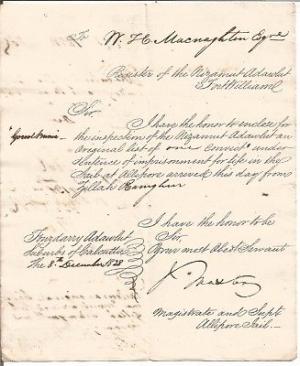 To
W. H. Macnaghten Esqre
Register of the Nizamut Adawlut
Fort William
Sir
I have the honor to enclose for
the inspection of the Nizamut Adawlut an
original list of one Convict under
Sentence of imprisonment for life in the
Jail at Allepore arrived this day from
Zillah
I have the honor to be
Sir,
Your most Obedt Servant
Fouzdarry Adawlut
Suburbs of Calcutta
The 8th December 1828
Magistrate and Supt
Allepore Jail